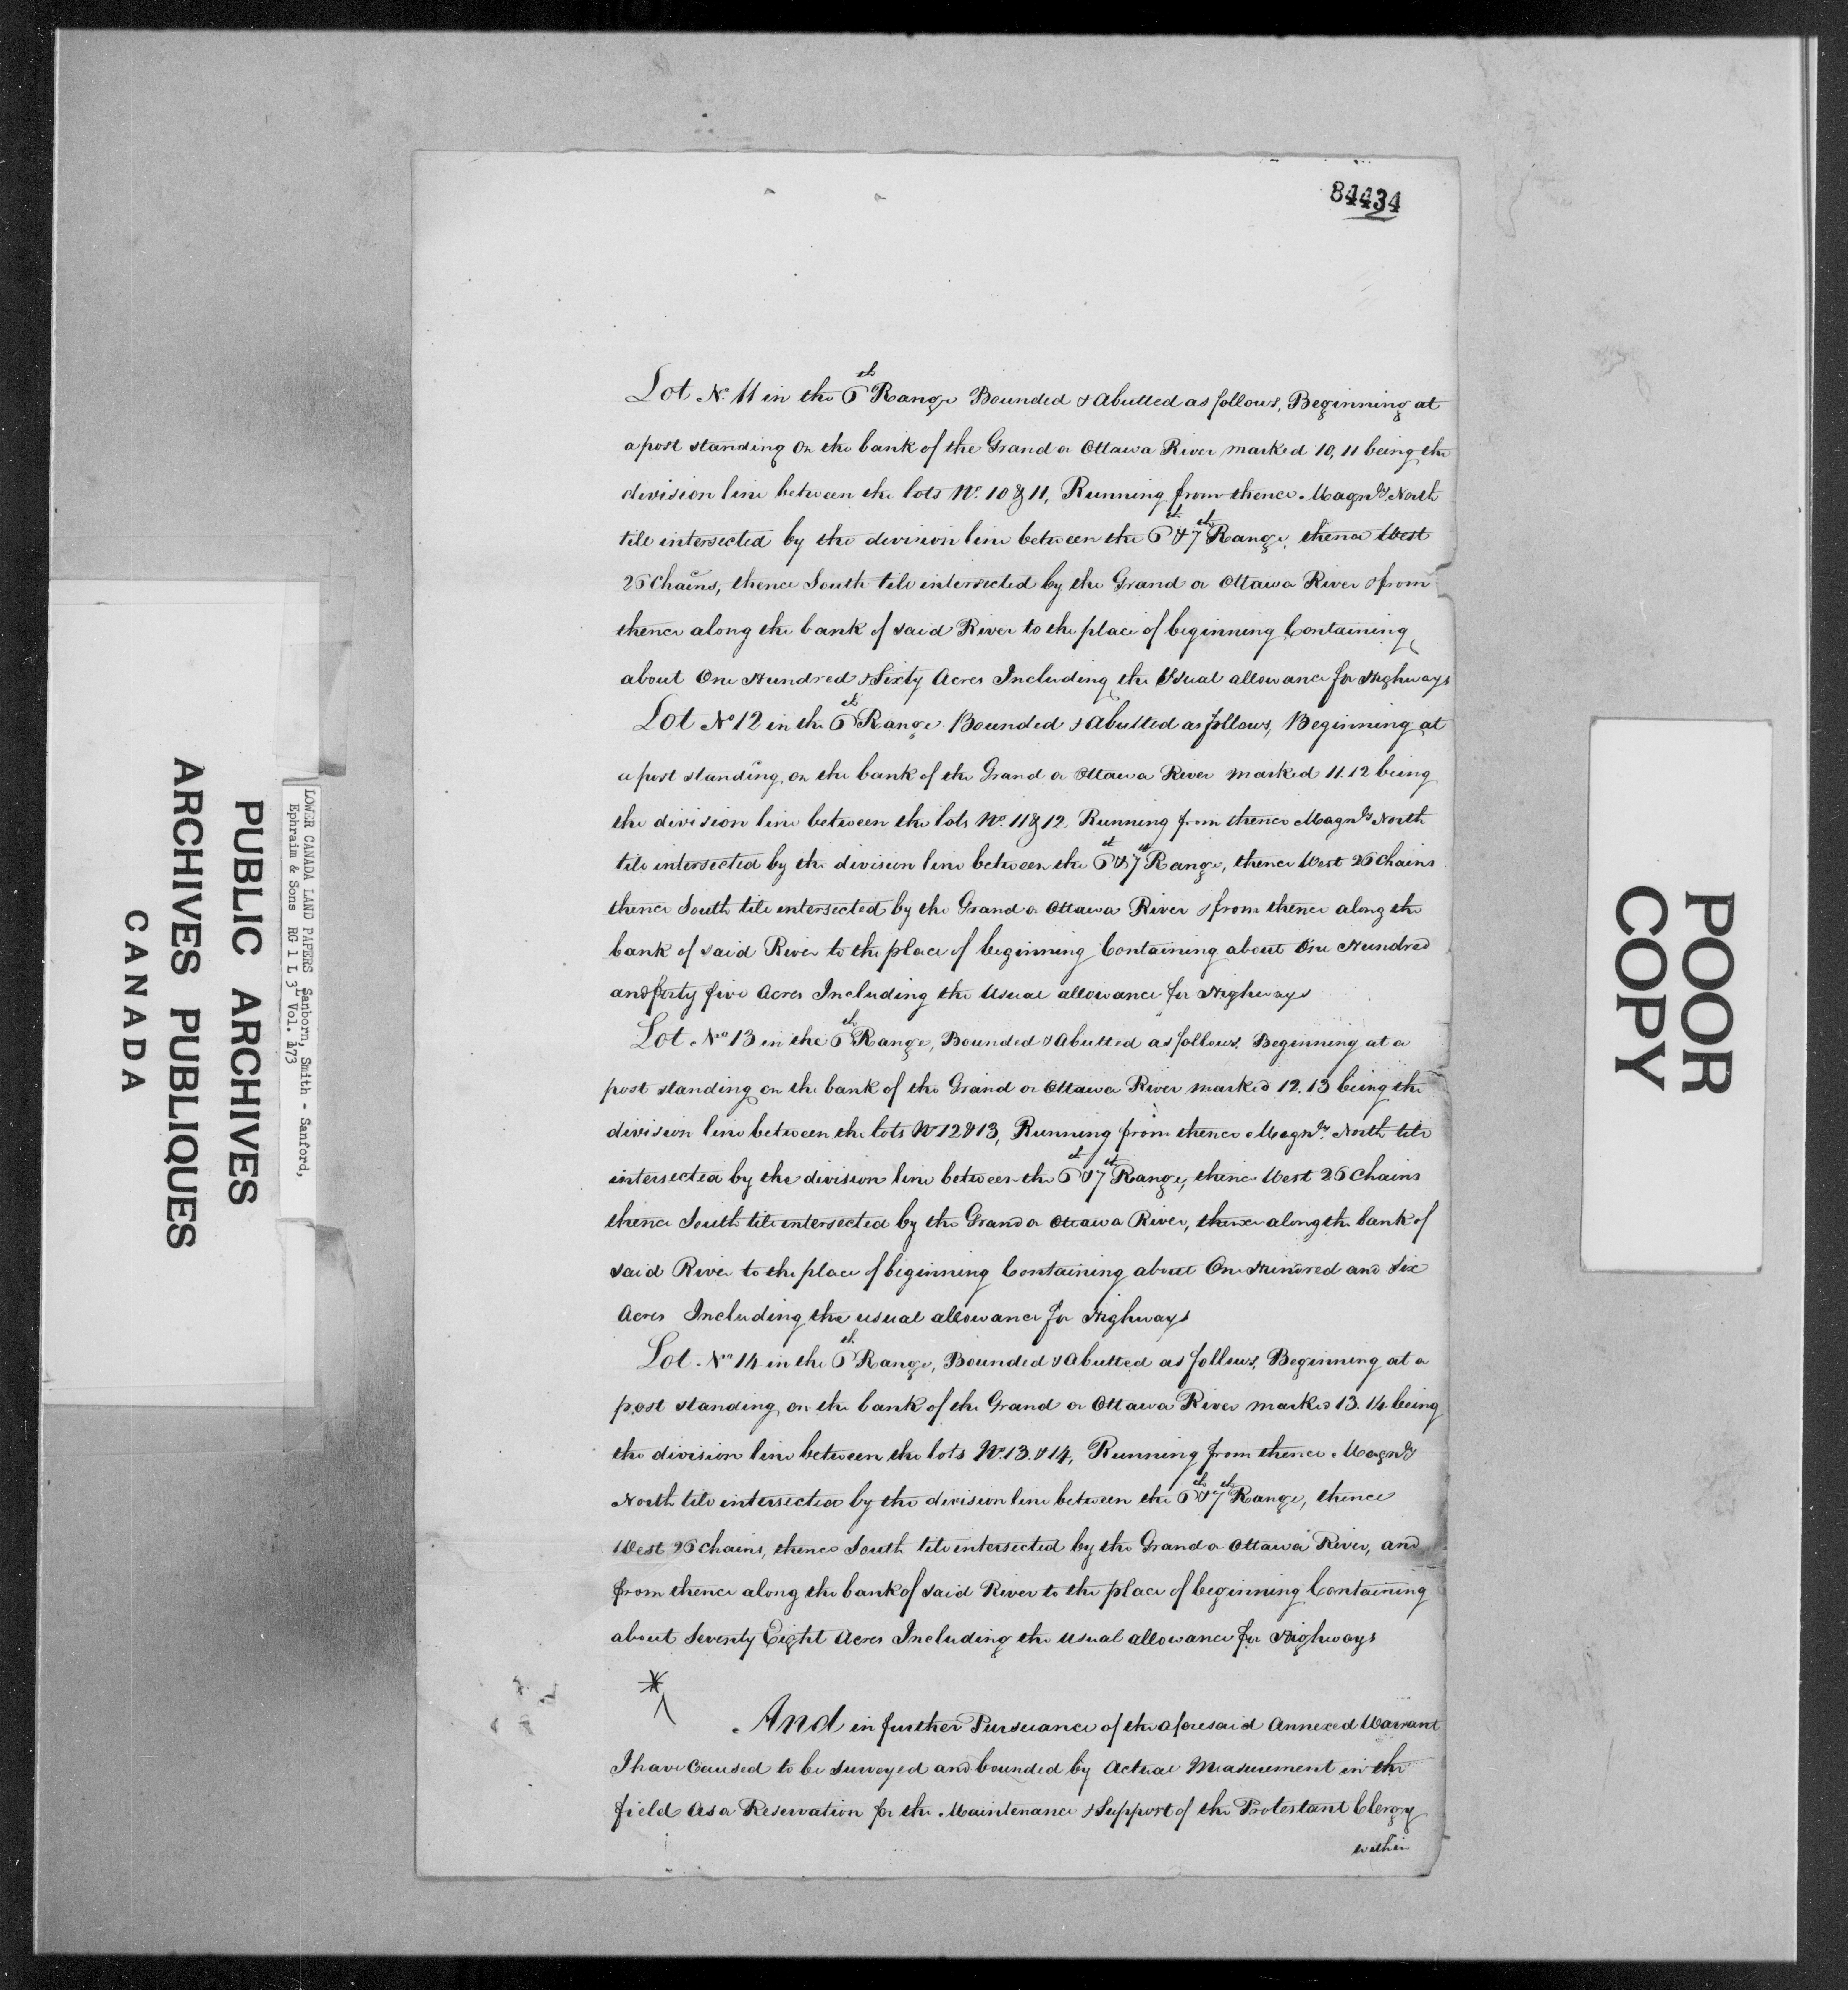 84434
Lot No. 11 in the 6th Range Bounded & Abutted as follows, Beginning at
a post standing On the bank of the Grand or Ottawa River marked 10, 11 being the
division line between the lots No. 10 & 11, Running from thence Magnly North
till intersected by the division line between the 6th & 7th Range, thence West
26 Chains, thence South till intersected by the Grand or Ottawa River & from
thence along the bank of said River to the place of beginning Containing
about One Hundred & Sixty Acres Including the Usual allowance for Highways
Lot No 12 in the 6th Range Bounded & Abutted as follows, Beginning at
a post standing on the bank of the Grand or Ottawa River marked 11.12 being
the division line between the lots No. 11 & 12, Running from thence Magnly North
till intersected by the division line between the 6th & 7th Range, thence West 26 Chains
thence South till intersected by the Grand or Ottawa River & from thence along the
bank of said River to the place of beginning Containing about One Hundred
and forty five Acres Including the Usual allowance for Highways
Lot No 13 in the 6th Range, Bounded & Abutted as follows, Beginning at a
post standing on the bank of the Grand or Ottawa River marked 12.13 being the
division line between the lots No 12 & 13, Running from thence Magnly North till
intersected by the division line between the 6th & 7th Range, thence West 26 Chains
thence South till intersected by the Grand or Ottawa River, thence along the bank of
said River to the place of beginning Containing about One Hundred and Six
Acres Including the usual allowance for Highways
Lot No 14 in the 6th Range, Bounded & Abutted as follows, Beginning at a
post standing on the bank of the Grand or Ottawa River marked 13.14 being
the division line between the lots No. 13. & 14, Running from thence Magnly
North till intersected by the division line between the 6th & 7th Range, thence
West 26 Chains, thence South till intersected by the Grand or Ottawa River, and
from thence along the bank of said River to the place of beginning Containing
about Seventy Eight Acres Including the usual allowance for Highways
And in further Pursuance of the aforesaid Annexed Warrant
I have Caused to be Surveyed and bounded by Actual Measurement in the
field As a Reservation for the Maintenance & Support of the Protestant Clergy
within
LOWER CANADA LAND PAPERS Sanborn, Smith - Sanford,
Ephraim & Sons RG 1 L 3 Vol. 173
PUBLIC ARCHIVES
ARCHIVES PUBLIQUES
CANADA
POOR
COPY